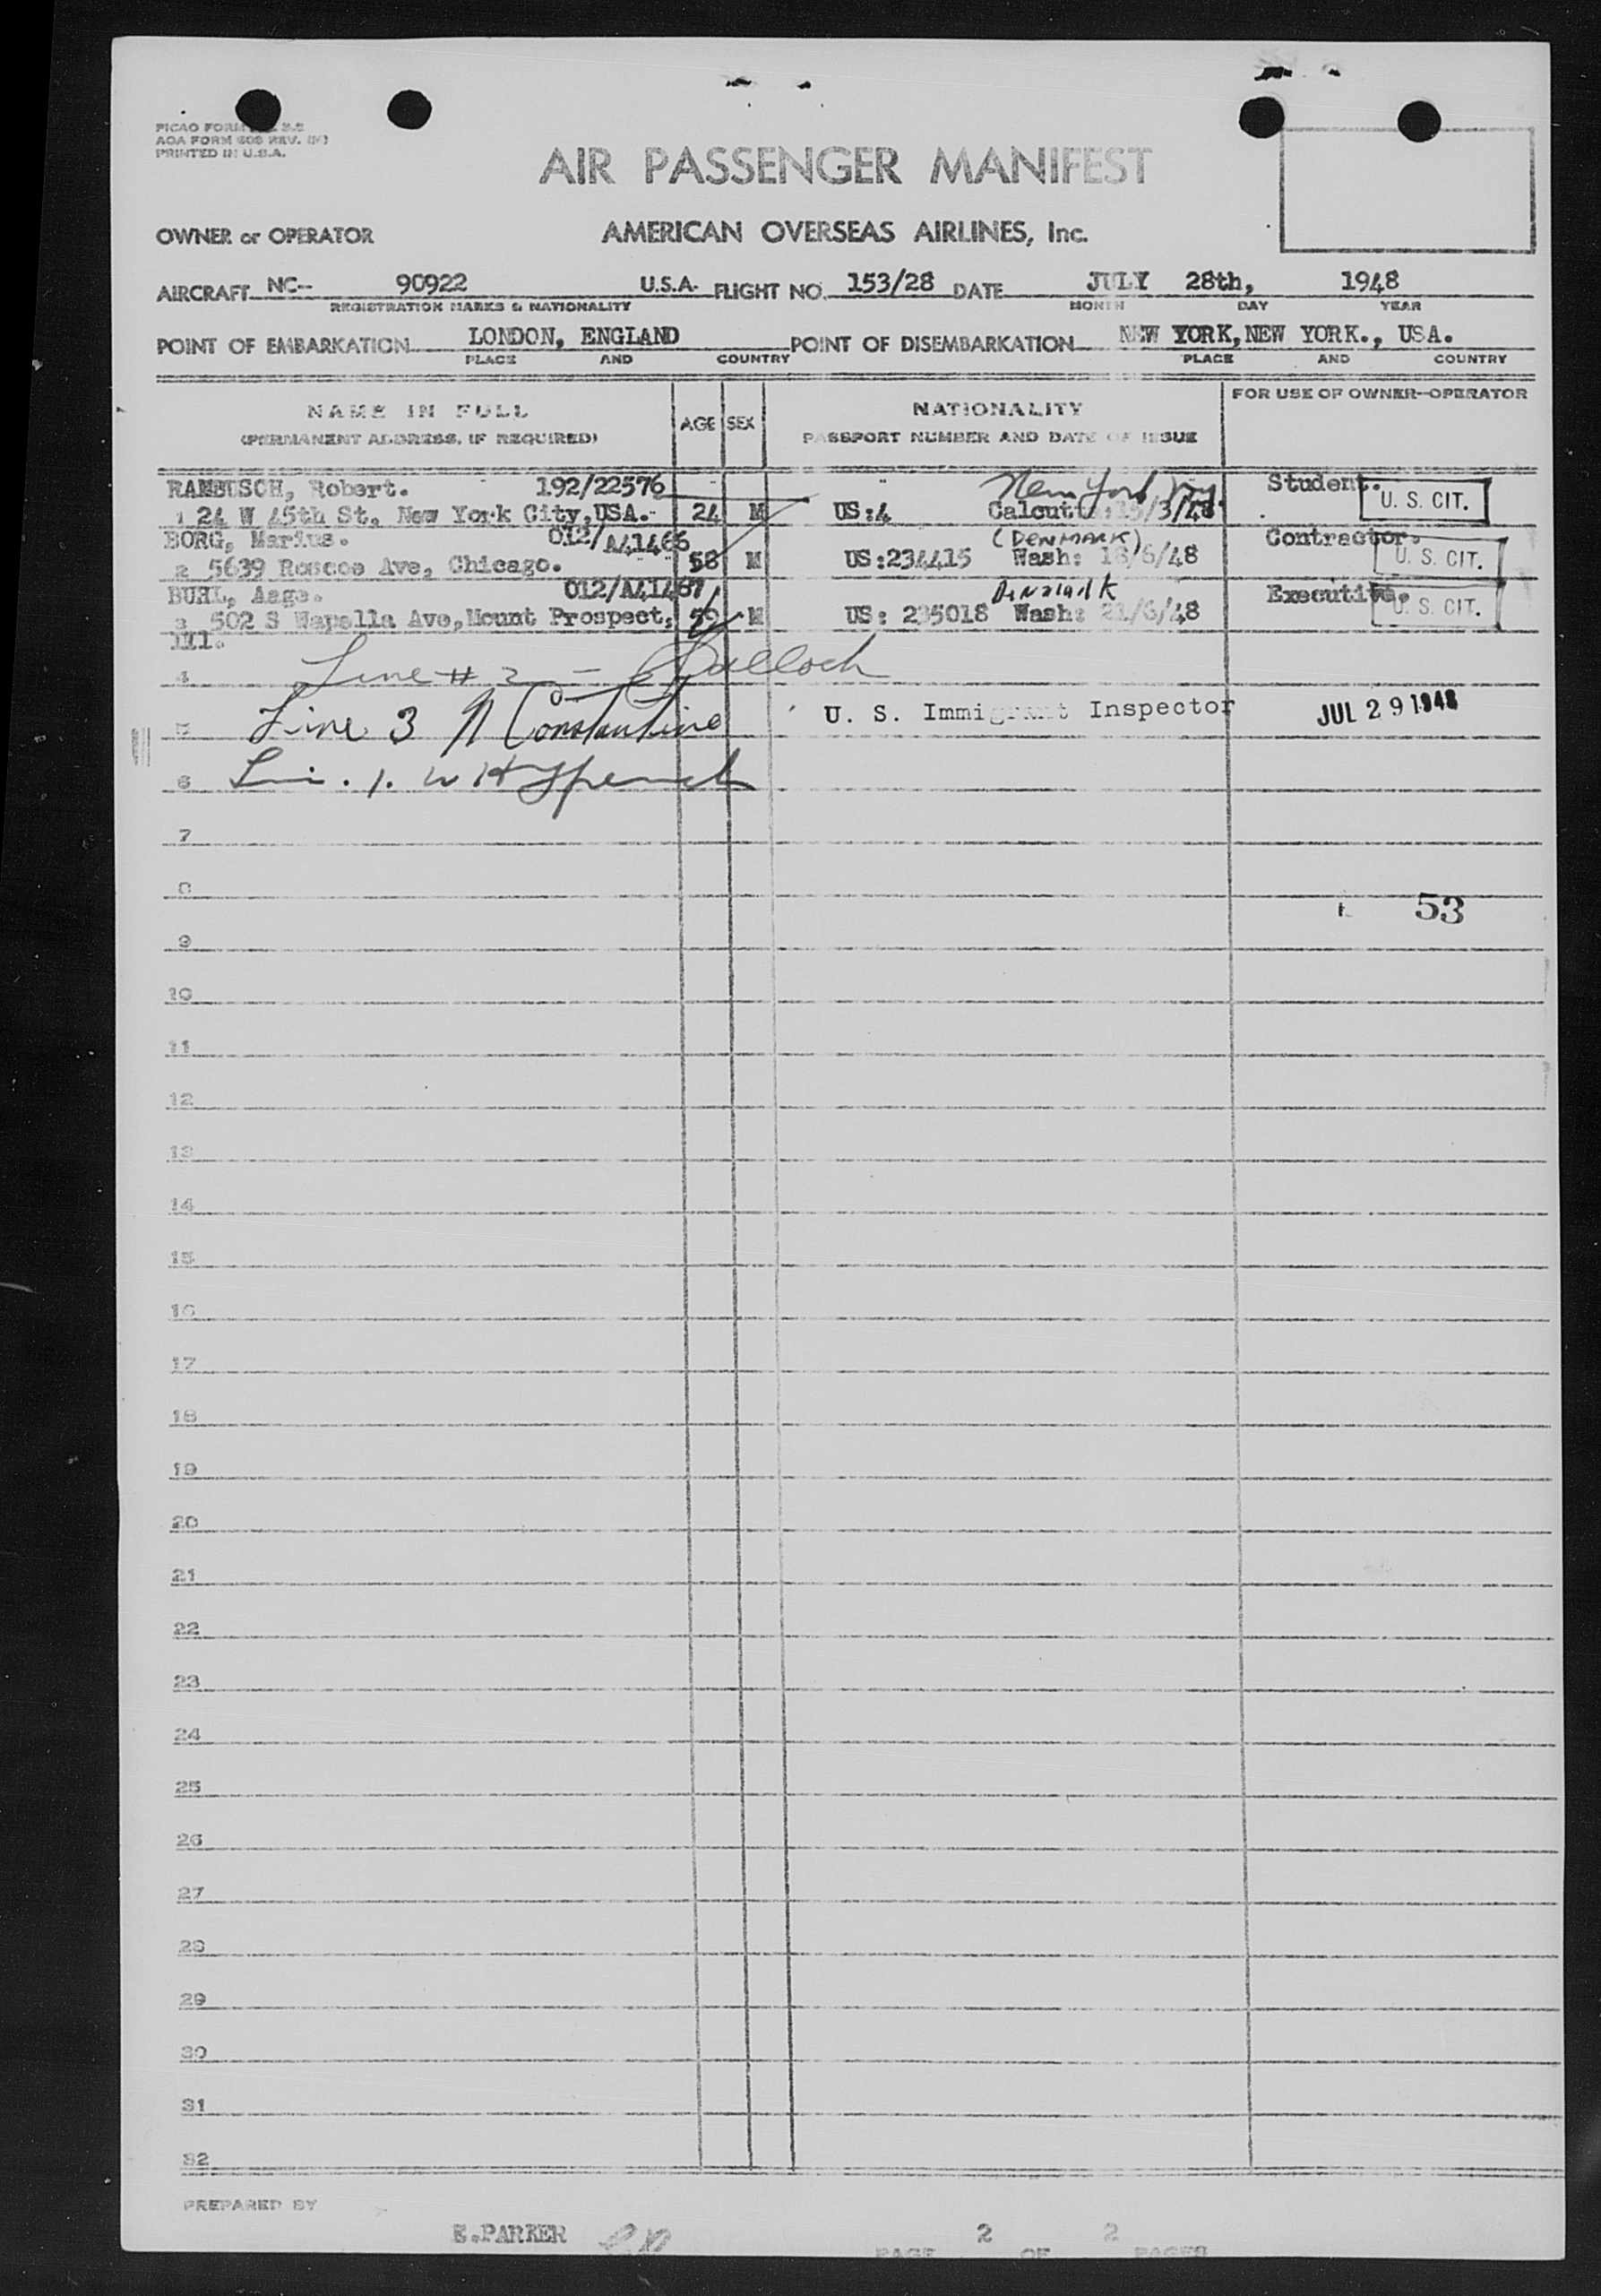 PICAO FORM
AOA FORM 608 REV.
PRINTED IN U.S.A.
AIR PASSENGER MANIFEST
OWNER or OPERATOR AMERICAN OVERSEAS AIRLINES, Inc.
AIRCRAFT NC-- 90922 U.S.A. FLIGHT NO. 153/28 DATE JULY 28th, 1948
REGISTRATION MARKS & NATIONALITY MONTH DAY YEAR
POINT OF EMBARKATION LONDON, ENGLAND POINT OF DISEMBARKATION NEW YORK, NEW YORK., USA.
PLACE AND COUNTRY PLACE AND COUNTRY
NAME IN FULL AGE SEX NATIONALITY FOR USE OF OWNER-OPERATOR
(PERMANENT ADDRESS, IF REQUIRED) PASSPORT NUMBER AND DATE OF ISSUE
RAMBUSCH, Robert. 192/22576 New York Student.
1 24 W 45th St, New York City, USA. 24 M US:4 /3/48. U. S. CIT.
BORG, Marius. 012/A41466 (DENMARK) Contractor.
2 5639 Roscoe Ave, Chicago. 58 M US:234415 Wash: 18/6/48 U. S. CIT.
BUHL, Aage. 012/A41467 Denmark Executive.
3 502 S Wapella Ave, Mount Prospect, 59 M US: 235018 Wash: 21/6/48 U. S. CIT.
Ill.
4 Line # 2 -
5 Line 3 N Constantine U. S. Immigrant Inspector JUL 29 1948
6
7
8 53
9
10
11
12
13
14
15
16
17
18
19
20
21
22
23
24
25
26
27
28
29
30
31
32
PREPARED BY
E.PARKER PAGE 2 OF 2 PAGES